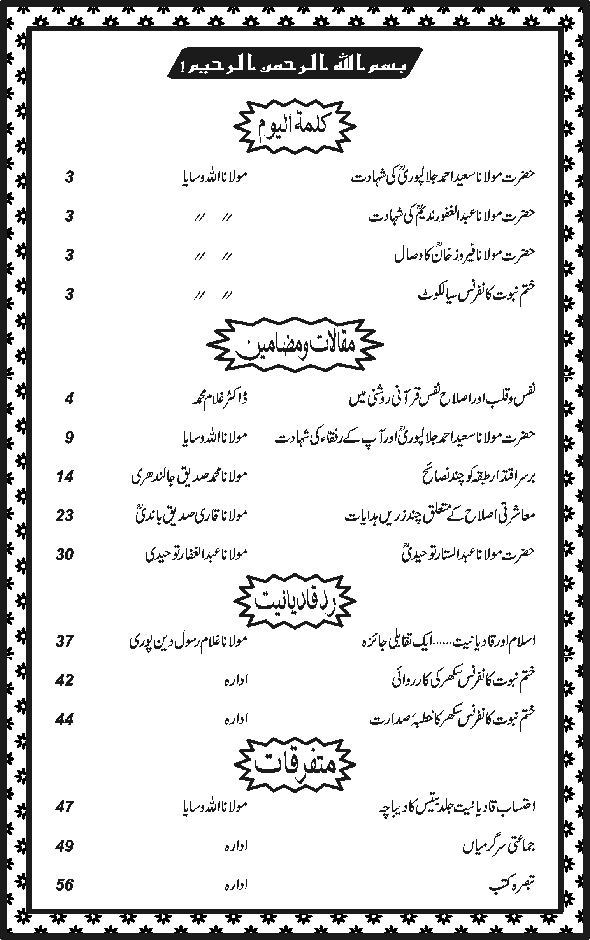 بسم اللہ الرحمن الرحیم!
کلمۃ الیوم
حضرت مولانا سعید احمد جلالپوریؒ کی شہادت مولانا اللہ وسایا 3
حضرت مولانا عبدالغفور ندیمؒ کی شہادت // // 3
حضرت مولانا فیروز خانؒ کا وصال // // 3
ختم نبوت کانفرنس سیالکوٹ // // 3
مقالات و مضامین
نفس و قلب اور اصلاح نفس قرآنی روشنی میں ڈاکٹر غلام محمد 4
حضرت مولانا سعید احمد جلالپوریؒ اور آپ کے رفقاء کی شہادت مولانا اللہ وسایا 9
برسر اقتدار طبقہ کو چند نصائح مولانا محمد صدیق جالندھری 14
معاشرتی اصلاح کے متعلق چند زریں ہدایات مولانا قاری صدیق باندویؒ 23
حضرت مولانا عبدالستار توحیدیؒ مولانا عبدالغفار توحیدی 30
رد قادیانیت
اسلام اور قادیانیت...... ایک تقابلی جائزہ مولانا غلام رسول دین پوری 37
ختم نبوت کانفرنس سکھر کی کارروائی ادارہ 42
ختم نبوت کانفرنس سکھر کا خطبۂ صدارت ادارہ 44
متفرقات
احتساب قادیانیت جلد بتیس کا دیباچہ مولانا اللہ وسایا 47
جماعتی سرگرمیاں ادارہ 49
تبصرہ کتب ادارہ 56